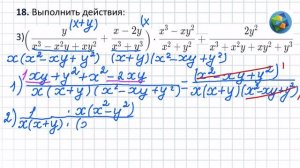 18. Выполнить действия:
(x+y) (x
3) ( y / x³ − x²y + xy² + x − 2y / x³ + y³ ) · x³ − xy² / x² + y² + 2y² / x³ + x²y + xy² + y³
x(x²−xy+y²) (x+y)(x²−xy+y²)
1) xy + y² + x² − 2xy / x(x+y)(x²−xy+y²) = (x²−xy+y²)¹ / x(x+y)(x²−xy+y²)
2) 1 · x(x²−y²) / x(x+y) · (x